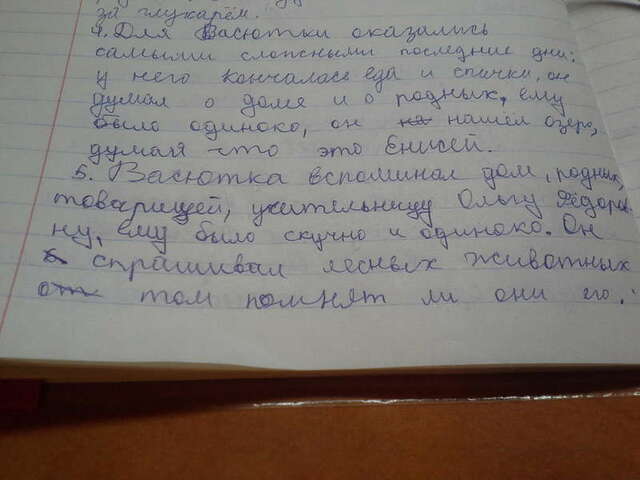 за глухарём.
4. Для Васютки оказались
самыми сложными последние дни:
у него кончалось еда и спички, он
думал о доме и о родных, ему
было одиноко, он на нашёл озеро,
думая что это Енисей.
5. Васютка вспоминал дом, родных,
товарищей, учительницу Ольгу Фёдоров-
ну, ему было скучно и одиноко. Он
спрашивал лесных животных
от том помнят ли они его.